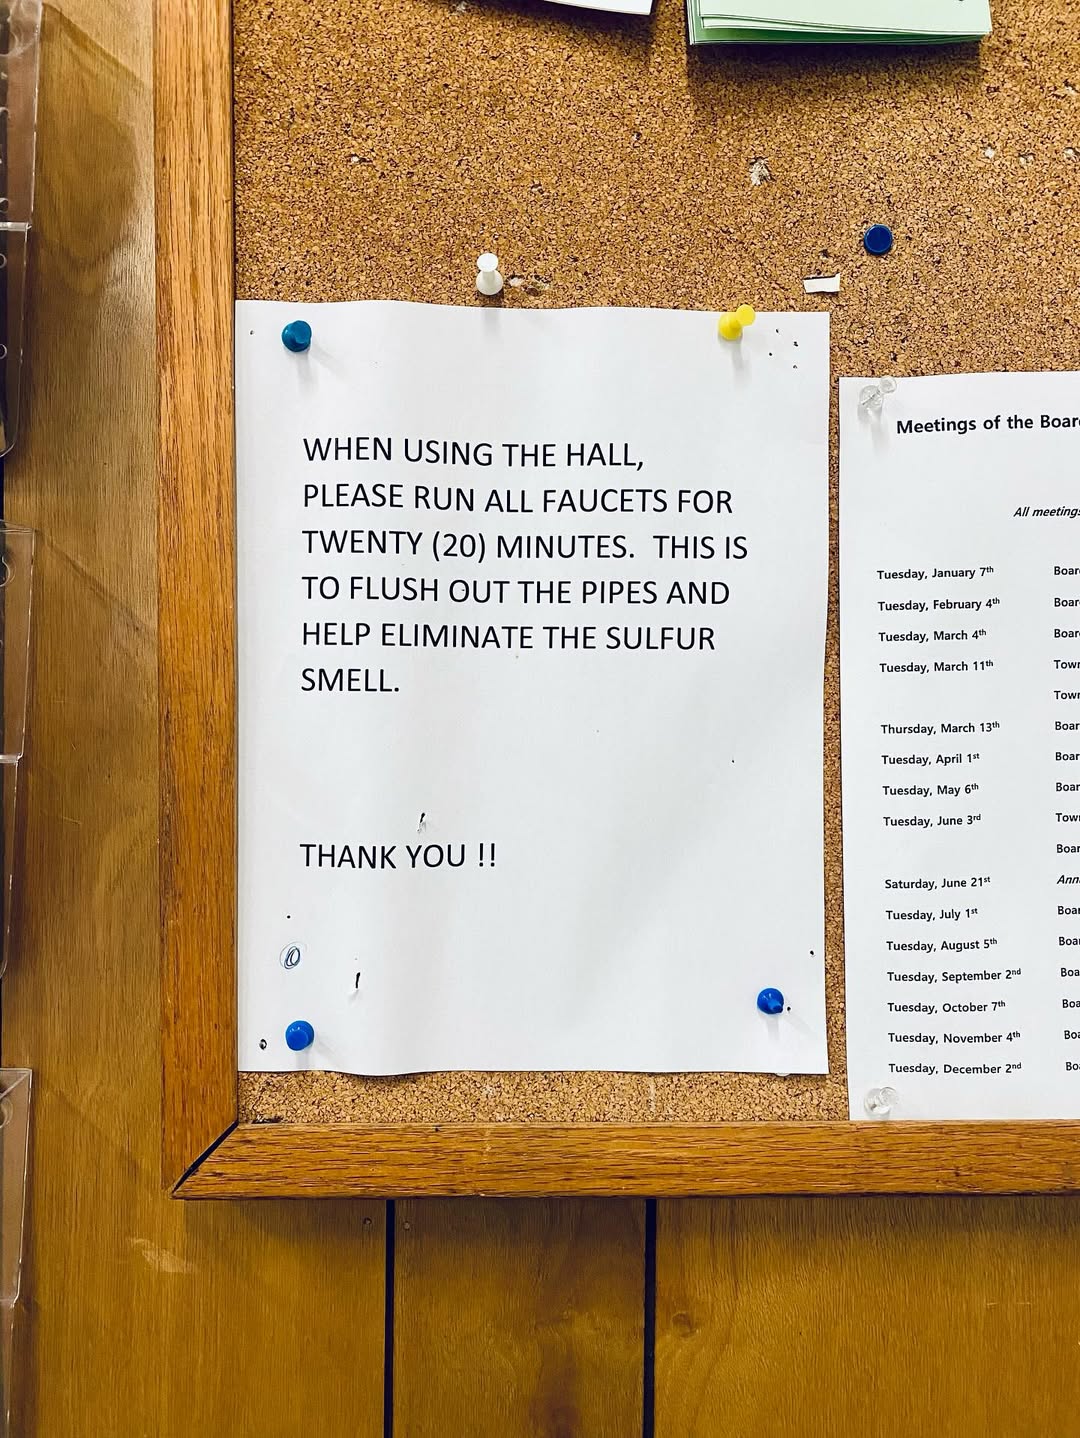 WHEN USING THE HALL,
PLEASE RUN ALL FAUCETS FOR
TWENTY (20) MINUTES.  THIS IS
TO FLUSH OUT THE PIPES AND
HELP ELIMINATE THE SULFUR
SMELL.
THANK YOU !!
Meetings of the
All meetings
Tuesday, January 7th
Tuesday, February 4th
Tuesday, March 4th
Tuesday, March 11th
Thursday, March 13th
Tuesday, April 1st
Tuesday, May 6th
Tuesday, June 3rd
Saturday, June 21st
Tuesday, July 1st
Tuesday, August 5th
Tuesday, September 2nd
Tuesday, October 7th
Tuesday, November 4th
Tuesday, December 2nd